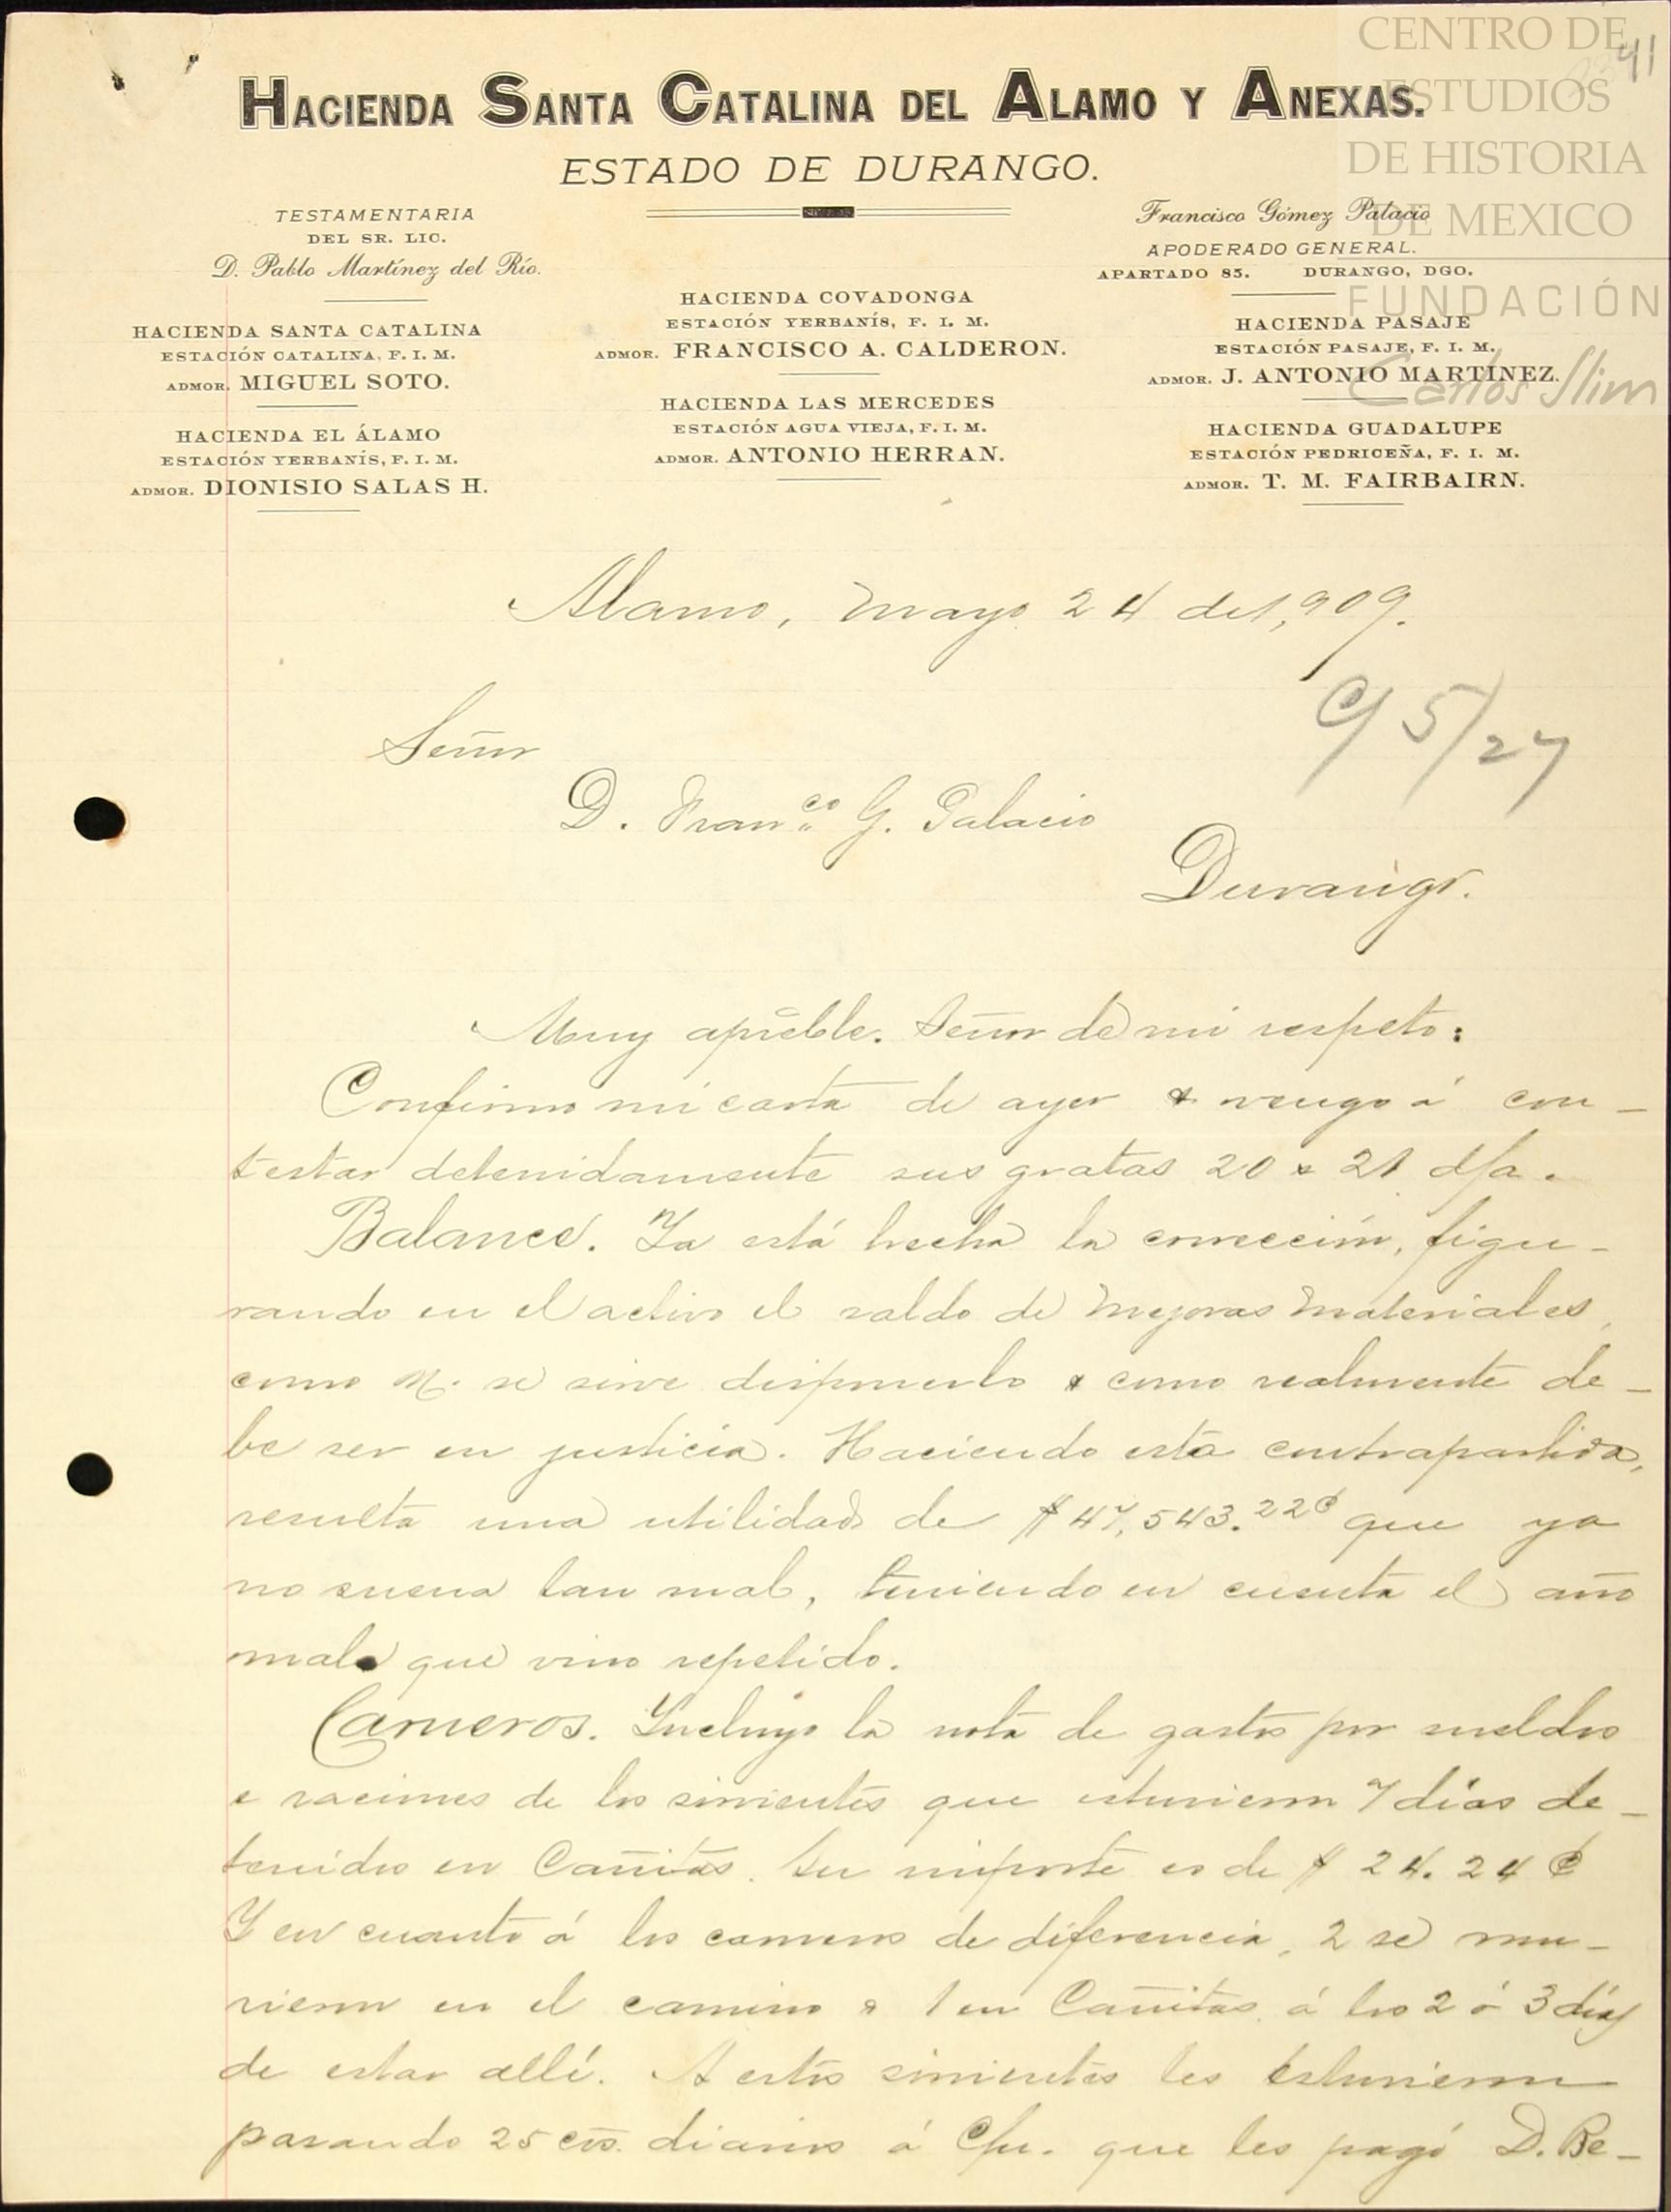 CENTRO DE
ESTUDIOS
DE HISTORIA
DE MEXICO
FUNDACIÓN
Carlos Slim
41
HACIENDA SANTA CATALINA DEL ALAMO Y ANEXAS.
ESTADO DE DURANGO.
TESTAMENTARIA
DEL SR. LIC.
D. Pablo Martínez del Río.
HACIENDA SANTA CATALINA
ESTACIÓN CATALINA, F. I. M.
ADMOR. MIGUEL SOTO.
HACIENDA EL ÁLAMO
ESTACIÓN YERBANÍS, F. I. M.
ADMOR. DIONISIO SALAS H.
HACIENDA COVADONGA
ESTACIÓN YERBANÍS, F. I. M.
ADMOR. FRANCISCO A. CALDERON.
HACIENDA LAS MERCEDES
ESTACIÓN AGUA VIEJA, F. I. M.
ADMOR. ANTONIO HERRAN.
Francisco Gómez Palacio
APODERADO GENERAL.
APARTADO 85. DURANGO, DGO.
HACIENDA PASAJE
ESTACIÓN PASAJE, F. I. M.
ADMOR. J. ANTONIO MARTÍNEZ.
HACIENDA GUADALUPE
ESTACIÓN PEDRICEÑA, F. I. M.
ADMOR. T. M. FAIRBAIRN.
Alamo, Mayo 24 de 1,909.
C/ 5/27
Señor
D. Franco G. Palacio
Durango.
Muy apreble. Señor de mi respeto:
Confirmo mi carta de ayer & vengo á con-
testar detenidamente sus gratas 20 & 21 d/a.
Balance. Ya está hecha la corrección, figu-
rando en el activo el saldo de Mejoras Materiales,
como U. se sirve disponerlo & como realmente de-
be ser en justicia. Haciendo esta contrapartida,
resulta una utilidad de $47,543.22¢ que ya
no suena tan mal, teniendo en cuenta el año
malo que vino repetido.
Carneros. Incluyo la nota de gastos por sueldos
e raciones de los sirvientes que estuvieron 7 días de-
tenidos en Cañitas. Su importe es de $24.24¢
Y en cuanto á los carneros de diferencia, 2 se mu-
rieron en el camino & 1 en Cañitas á los 2 ó 3 días
de estar allí. A estos sirvientes les estuvieron
pasando 25 cvs. diarios á c/u. que les pagó D. Be-